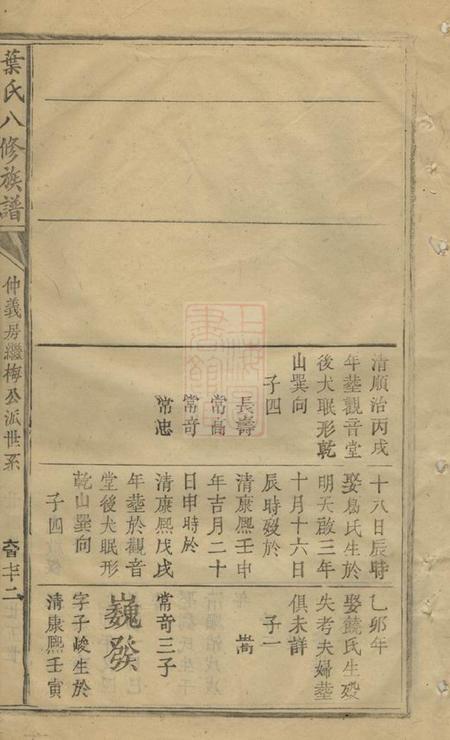 清順治丙戌
年塟觀音堂
後犬眠形乾
山巽向
子四
長壽
常高
常奇
常忠
十八日辰時
娶易氏生於
明天啟三年
十月十六日
辰時歿於
清康熙壬申
年吉月二十
日申時於
清康熙戊戌
年塟於觀音
堂後犬眠形
乾山巽向
子四
乙卯年
娶饒氏生歿
失考夫婦塟
俱未詳
子一
嵩
常奇三子
巍發
字子峻生於
清康熙壬寅
葉氏八修族譜
仲義房繼梅公派世系